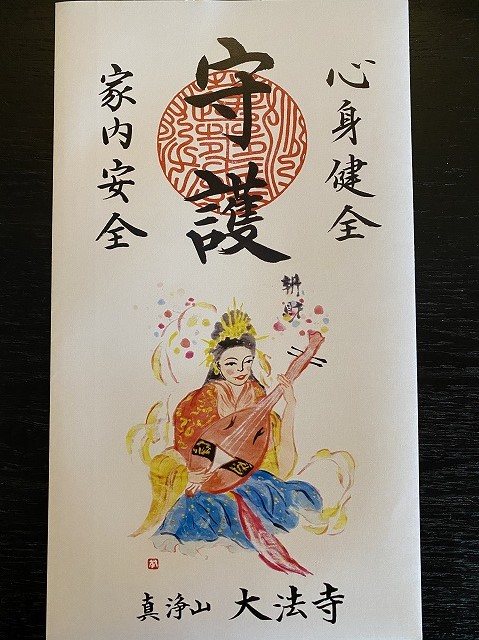 心身健全
守護
家内安全
真浄山 大法寺